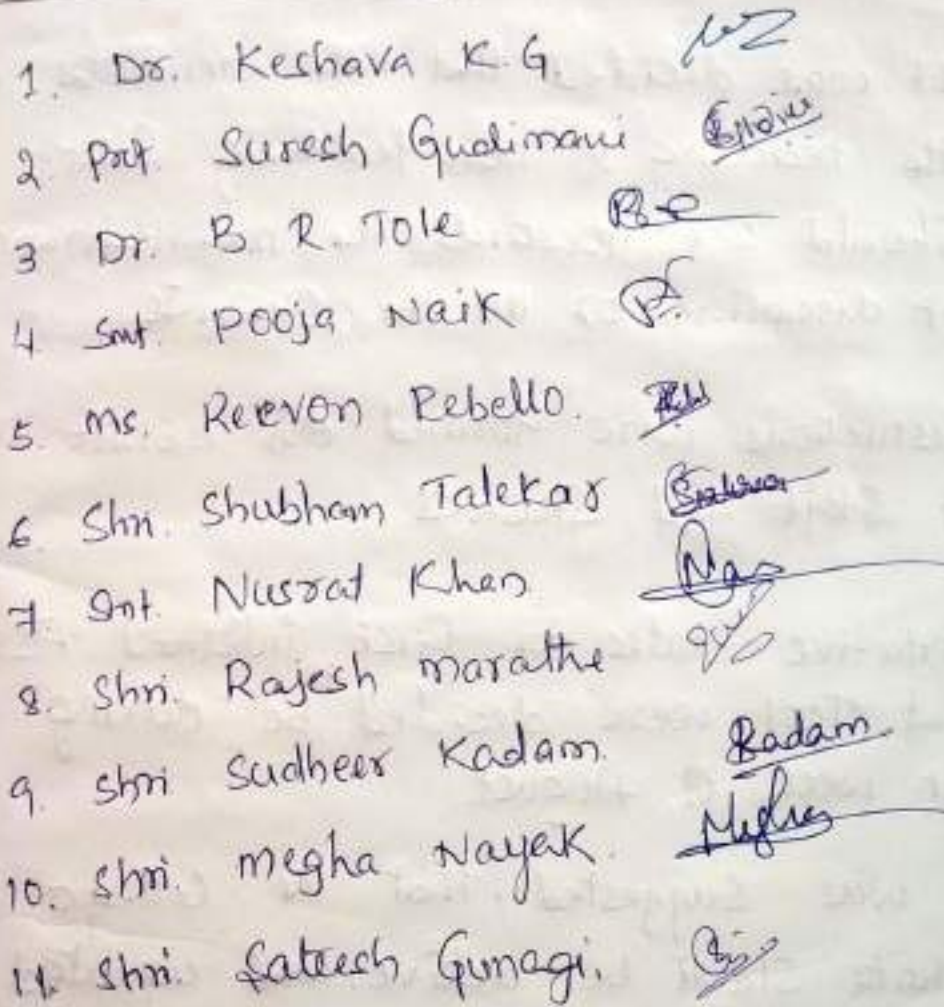 1. Dr. Keshava K.G
2 Prof. Suresh Gudimani
3 Dr. B. R. Tole
4 Smt. Pooja Naik
5. Ms. Reevon Rebello.
6. Shri. Shubham Talekar
7. Smt. Nusrat Khan
8. Shri. Rajesh Marathe
9. Shri Sudheer Kadam. Kadam
10. Shri. Megha Nayak. Megha
11. Shri. Sateesh Gunagi.